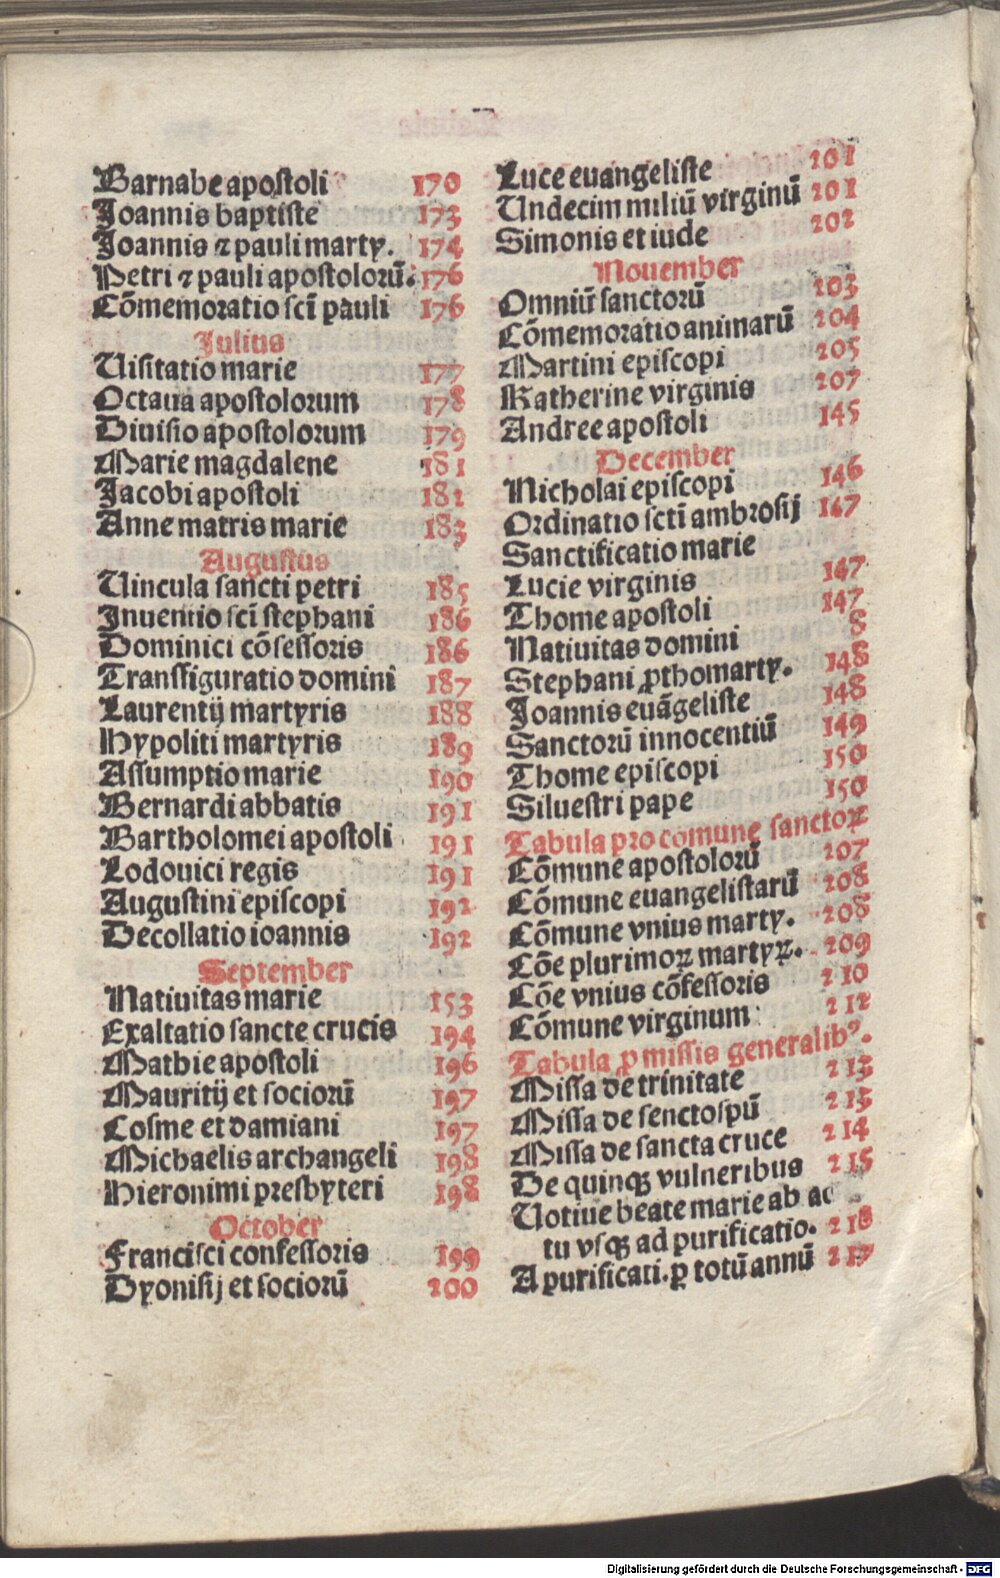 Barnabe apostoli 170
Joannis baptiste 173
Joannis ⁊ pauli marty. 174
Petri ⁊ pauli apostolorū. 176
Cōmemoratio scī pauli 176
Julius
Uisitatio marie 177
Octaua apostolorum 178
Diuisio apostolorum 179
Marie magdalene 181
Jacobi apostoli 182
Anne matris marie 183
Augustus
Uincula sancti petri 185
Inuentio scī stephani 186
Dominici cōfessoris 186
Transfiguratio domini 187
Laurentij martyris 188
Hypoliti martyris 189
Assumptio marie 190
Bernardi abbatis 191
Bartholomei apostoli 191
Lodouici regis 191
Augustini episcopi 192
Decollatio ioannis 192
September
Natiuitas marie 153
Exaltatio sancte crucis 194
Mathie apostoli 196
Mauritij et sociorū 197
Cosme et damiani 197
Michaelis archangeli 198
Hieronimi presbyteri 198
October
Francisci confessoris 199
Dyonisij et sociorū 200
Luce euangeliste 201
Undecim miliū virginū 201
Simonis et iude 202
Nouember
Omniū sanctorū 203
Cōmemoratio animarū 204
Martini episcopi 205
Katherine virginis 207
Andree apostoli 145
December
Nicholai episcopi 146
Ordinatio sctī ambrosij 147
Sanctificatio marie
Lucie virginis 147
Thome apostoli 147
Natiuitas domini 8
Stephani ꝓthomarty. 148
Joannis euāgeliste 148
Sanctorū innocentiū 149
Thome episcopi 150
Siluestri pape 150
Tabula pro comune sanctoꝝ
Cōmune apostolorū 207
Cōmune euangelistarū 208
Cōmune vnius marty. 208
Cōe plurimoꝝ martyꝝ. 209
Cōe vnius cōfessoris 210
Cōmune virginum 212
Tabula ꝓ missis generalibꝰ.
Missa de trinitate 213
Missa de senctospū 213
Missa de sancta cruce 214
De quinqꝫ vulneribus 215
Uotiue beate marie ab ac
tu vsqꝫ ad purificatio. 218
A purificati. ꝑ totū annū 217
Digitalisierung gefördert durch die Deutsche Forschungsgemeinschaft - DFG